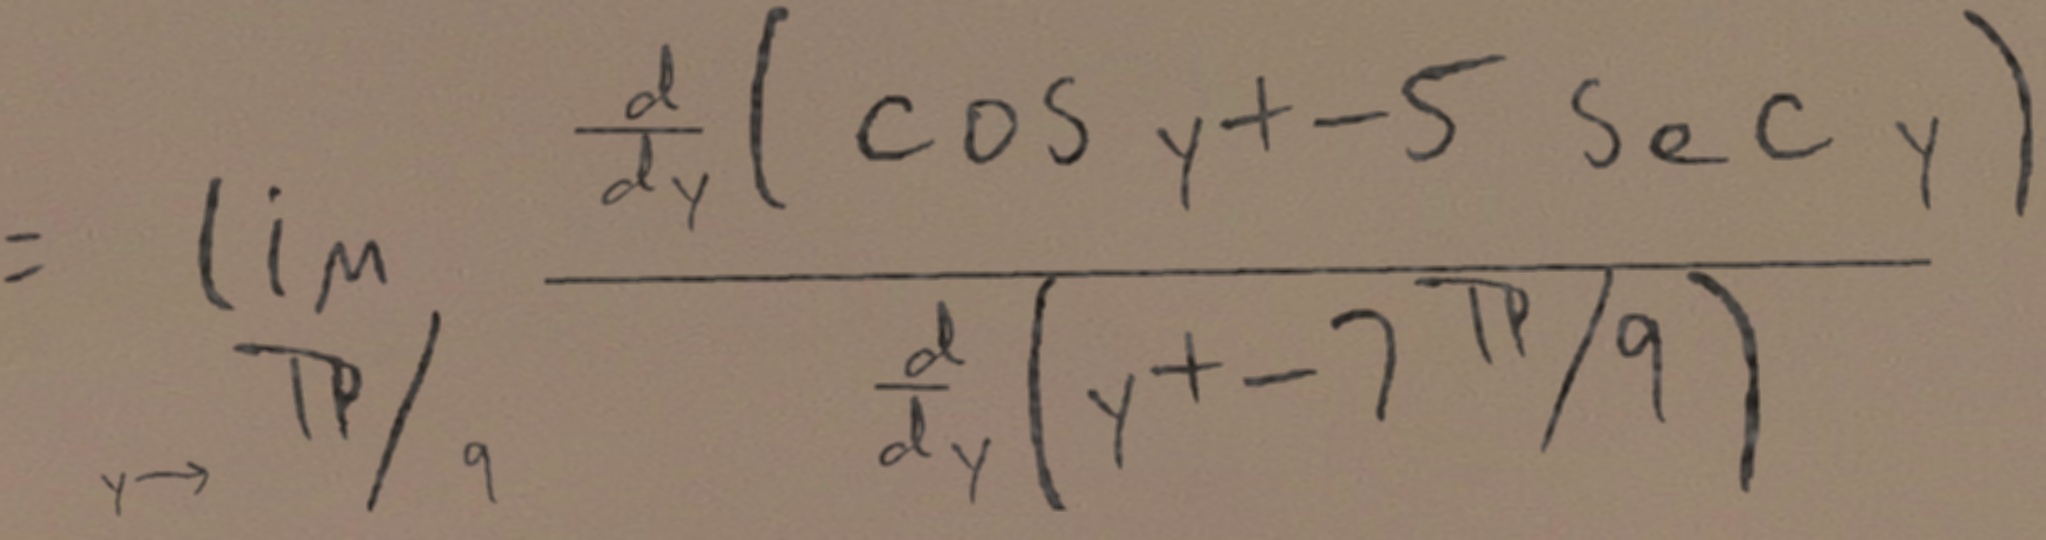 = \lim_{y \to \pi/9} \frac{\frac{d}{dy}\left(\cos y + -5 \sec y\right)}{\frac{d}{dy}\left(y + -7\pi/9\right)}